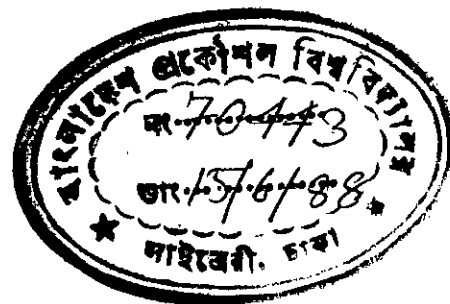 বাংলাদেশ প্রকৌশল বিশ্ববিদ্যালয়
নং..70443
তাং..15/6/88
লাইব্রেরী, ঢাকা